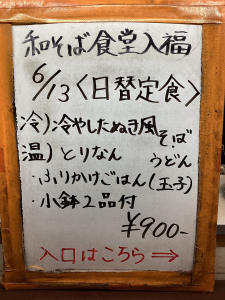 和そば食堂入福
6/13〈日替定食〉
冷)冷やしたぬき風そば
温)とりなん うどん
・ふりかけごはん(玉子)
・小鉢2品付
¥900-
入口はこちら⇒